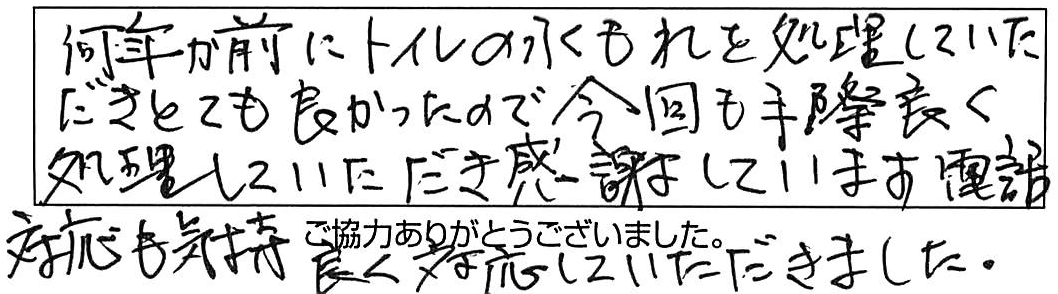 何年か前にトイレの水くもれを処理していた
だきとても良かったので今回も手際良く
処理していただき感謝しています電話
対応も気持
ご協力ありがとうございました。
良く対応していただきました。